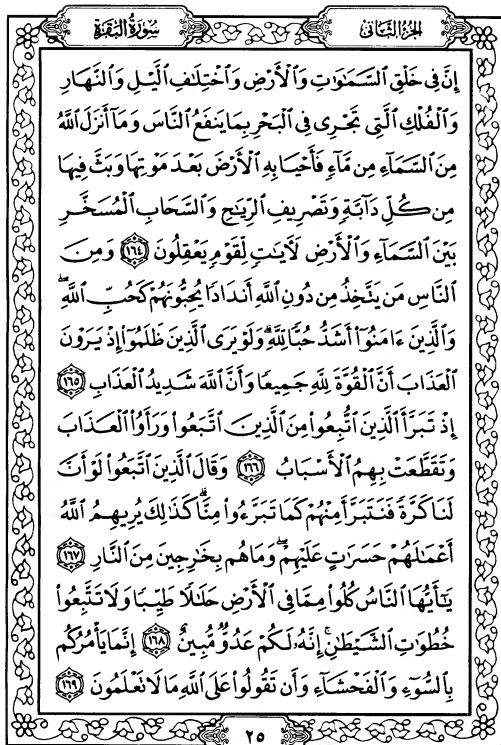 سُورَةُ البَقَرَةِ
الجُزءُ الثَّانِي
إِنَّ فِي خَلْقِ ٱلسَّمَٰوَٰتِ وَٱلْأَرْضِ وَٱخْتِلَٰفِ ٱلَّيْلِ وَٱلنَّهَارِ
وَٱلْفُلْكِ ٱلَّتِي تَجْرِي فِي ٱلْبَحْرِ بِمَا يَنفَعُ ٱلنَّاسَ وَمَآ أَنزَلَ ٱللَّهُ
مِنَ ٱلسَّمَآءِ مِن مَّآءٍ فَأَحْيَا بِهِ ٱلْأَرْضَ بَعْدَ مَوْتِهَا وَبَثَّ فِيهَا
مِن كُلِّ دَآبَّةٍ وَتَصْرِيفِ ٱلرِّيَٰحِ وَٱلسَّحَابِ ٱلْمُسَخَّرِ
بَيْنَ ٱلسَّمَآءِ وَٱلْأَرْضِ لَءَايَٰتٍ لِّقَوْمٍ يَعْقِلُونَ ١٦٤ وَمِنَ
ٱلنَّاسِ مَن يَتَّخِذُ مِن دُونِ ٱللَّهِ أَندَادًا يُحِبُّونَهُمْ كَحُبِّ ٱللَّهِۖ
وَٱلَّذِينَ ءَامَنُوٓا۟ أَشَدُّ حُبًّا لِّلَّهِۗ وَلَوْ يَرَى ٱلَّذِينَ ظَلَمُوٓا۟ إِذْ يَرَوْنَ
ٱلْعَذَابَ أَنَّ ٱلْقُوَّةَ لِلَّهِ جَمِيعًا وَأَنَّ ٱللَّهَ شَدِيدُ ٱلْعَذَابِ ١٦٥
إِذْ تَبَرَّأَ ٱلَّذِينَ ٱتُّبِعُوا۟ مِنَ ٱلَّذِينَ ٱتَّبَعُوا۟ وَرَأَوُا۟ ٱلْعَذَابَ
وَتَقَطَّعَتْ بِهِمُ ٱلْأَسْبَابُ ١٦٦ وَقَالَ ٱلَّذِينَ ٱتَّبَعُوا۟ لَوْ أَنَّ
لَنَا كَرَّةً فَنَتَبَرَّأَ مِنْهُمْ كَمَا تَبَرَّءُوا۟ مِنَّاۗ كَذَٰلِكَ يُرِيهِمُ ٱللَّهُ
أَعْمَٰلَهُمْ حَسَرَٰتٍ عَلَيْهِمْۖ وَمَا هُم بِخَٰرِجِينَ مِنَ ٱلنَّارِ ١٦٧
يَٰٓأَيُّهَا ٱلنَّاسُ كُلُوا۟ مِمَّا فِي ٱلْأَرْضِ حَلَٰلًا طَيِّبًا وَلَا تَتَّبِعُوا۟
خُطُوَٰتِ ٱلشَّيْطَٰنِۚ إِنَّهُۥ لَكُمْ عَدُوٌّ مُّبِينٌ ١٦٨ إِنَّمَا يَأْمُرُكُم
بِٱلسُّوٓءِ وَٱلْفَحْشَآءِ وَأَن تَقُولُوا۟ عَلَى ٱللَّهِ مَا لَا تَعْلَمُونَ ١٦٩
٢٥